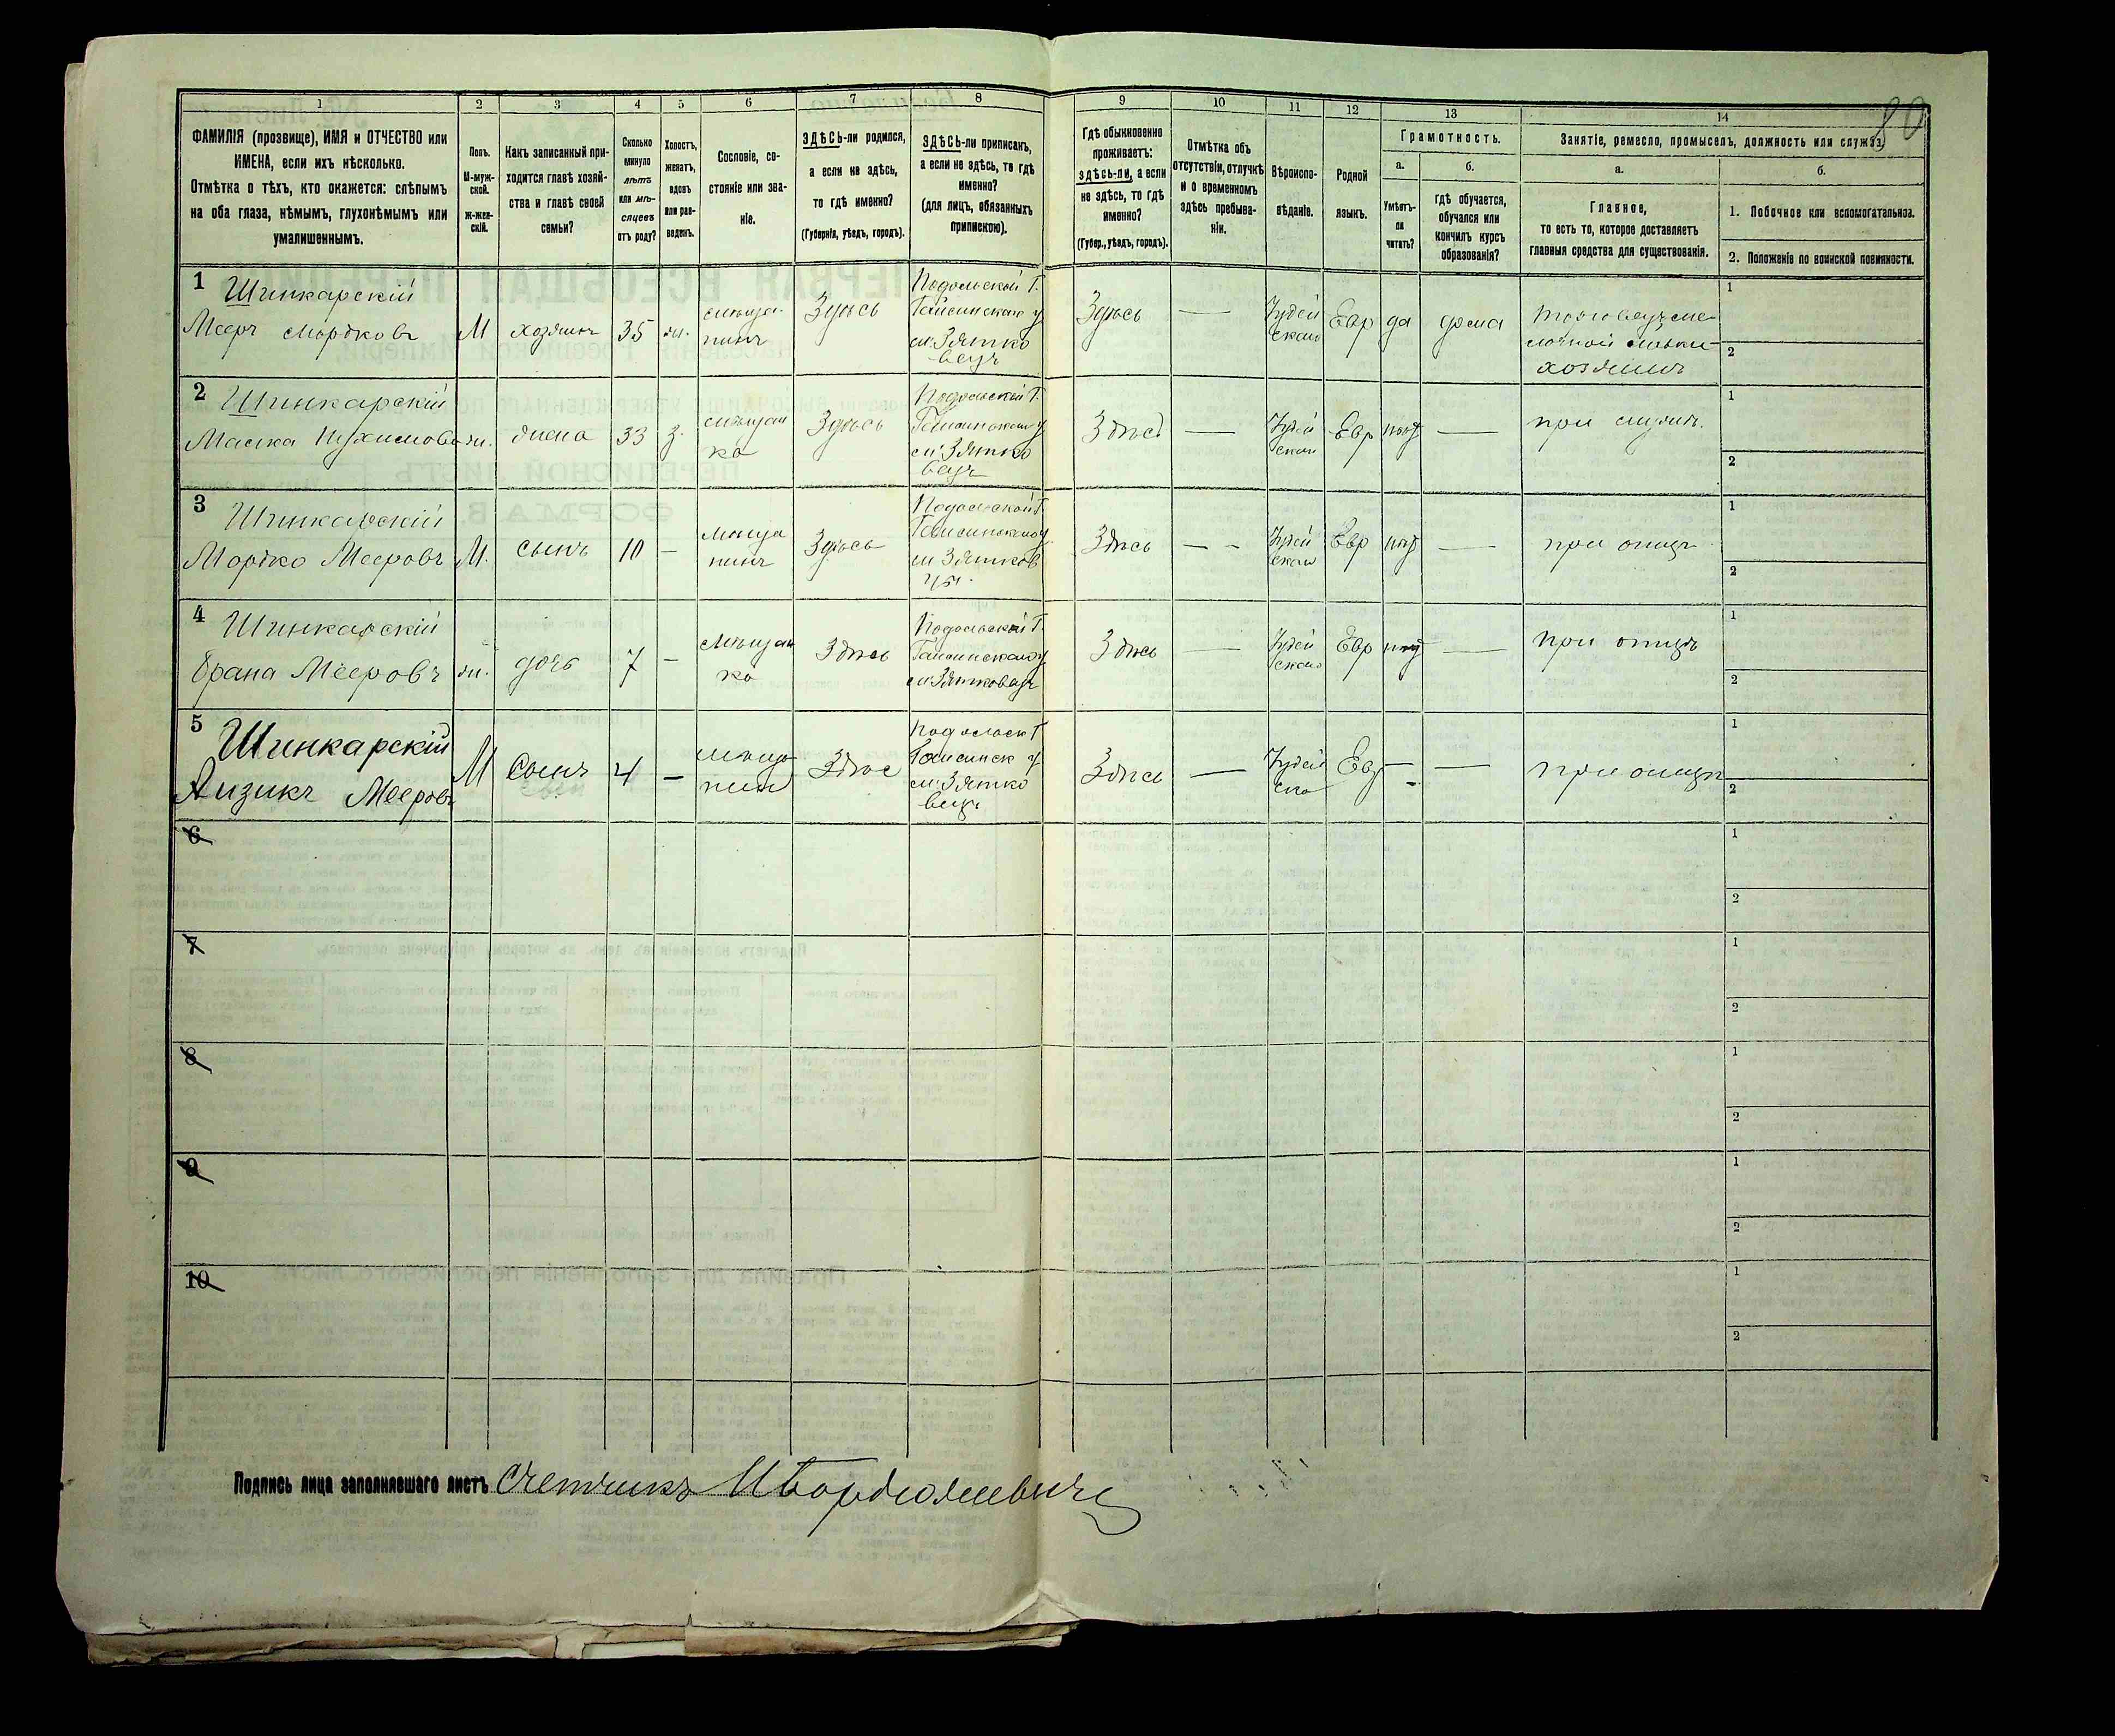 80
1 2 3 4 5 6 7 8 9 10 11 12 13 14
ФАМИЛІЯ (прозвище), ИМЯ и ОТЧЕСТВО или
ИМЕНА, если ихъ нѣсколько.
Отмѣтка о тѣхъ, кто окажется: слѣпымъ
на оба глаза, нѣмымъ, глухонѣмымъ или
умалишеннымъ.
Полъ.
М-муж-
ской.
Ж-жен-
скій.
Какъ записанный при-
ходится главѣ хозяй-
ства и главѣ своей
семьи?
Сколько
минуло
лѣтъ
или мѣ-
сяцевъ
отъ роду?
Холостъ,
женатъ,
вдовъ
или раз-
веденъ.
Сословіе, со-
стояніе или зва-
ніе.
ЗДѢСЬ-ли родился,
а если не здѣсь,
то гдѣ именно?
(Губернія, уѣздъ, городъ).
ЗДѢСЬ-ли приписанъ,
а если не здѣсь, то гдѣ
именно?
(для лицъ, обязанныхъ
припискою).
Гдѣ обыкновенно
проживаетъ:
здѣсь-ли, а если
не здѣсь, то гдѣ
именно?
(Губер., уѣздъ, городъ).
Отмѣтка объ
отсутствіи, отлучкѣ
и о временномъ
здѣсь пребыва-
ніи.
Вѣроиспо-
вѣданіе.
Родной
языкъ.
Грамотность.
а.
Умѣетъ-
ли
читать?
б.
гдѣ обучается,
обучался или
кончилъ курсъ
образованія?
Занятіе, ремесло, промыселъ, должность или служба.
а.
Главное,
то есть то, которое доставляетъ
главныя средства для существованія.
б.
1. Побочное или вспомогательное.
2. Положеніе по воинской повинности.
1 Шинкарскій
Мееръ Мордковъ
М
хозяинъ
35
ж.
мѣща-
нинъ
Здѣсь
Подольской Г.
Гайсинскаго у
м. Зятко
вецъ
Здѣсь
—
Іудей
скаго
Евр
да
дома
торговецъ ме-
лочной лавки-
хозяинъ
1
2
2 Шинкарскій
ж.
жена
33
З.
мѣщан
ка
Здѣсь
Подольской Г.
Гайсинскаго у
м. Зятко
вецъ
Здѣсь
—
Іудей
скаго
Евр
нѣт
—
при мужѣ.
1
2
3 Шинкарскій
Мордко Мееровъ
М.
сынъ
10
—
мѣща
нинъ
Здѣсь
Подольской Г
Гайсинскаго у.
м Зятков
цы.
Здѣсь
— -
Іудей
скаго
Евр
нѣт
—
при отцѣ
1
2
4 Шинкарскій
Брана Мееровъ
ж.
дочь
7
—
мѣщан
ка
Здѣсь
Подольской Г.
Гайсинскаго у
м. Зятковецъ
Здѣсь
—
Іудей
скаго
Евр
нѣт
—
при отцѣ
1
2
5 Шинкарскій
Аизикъ Мееровъ
М
Сынъ
4
—
мѣща
нин
Здѣс
Подольск Г
Гайсинск у
м. Зятко
вецъ
Здѣсь
—
Іудей
ско
Евр
—
—
при отцѣ
1
2
6
1
2
7
1
2
8
1
2
9
1
2
10
1
2
Подпись лица заполнявшаго листъ Счетчикъ